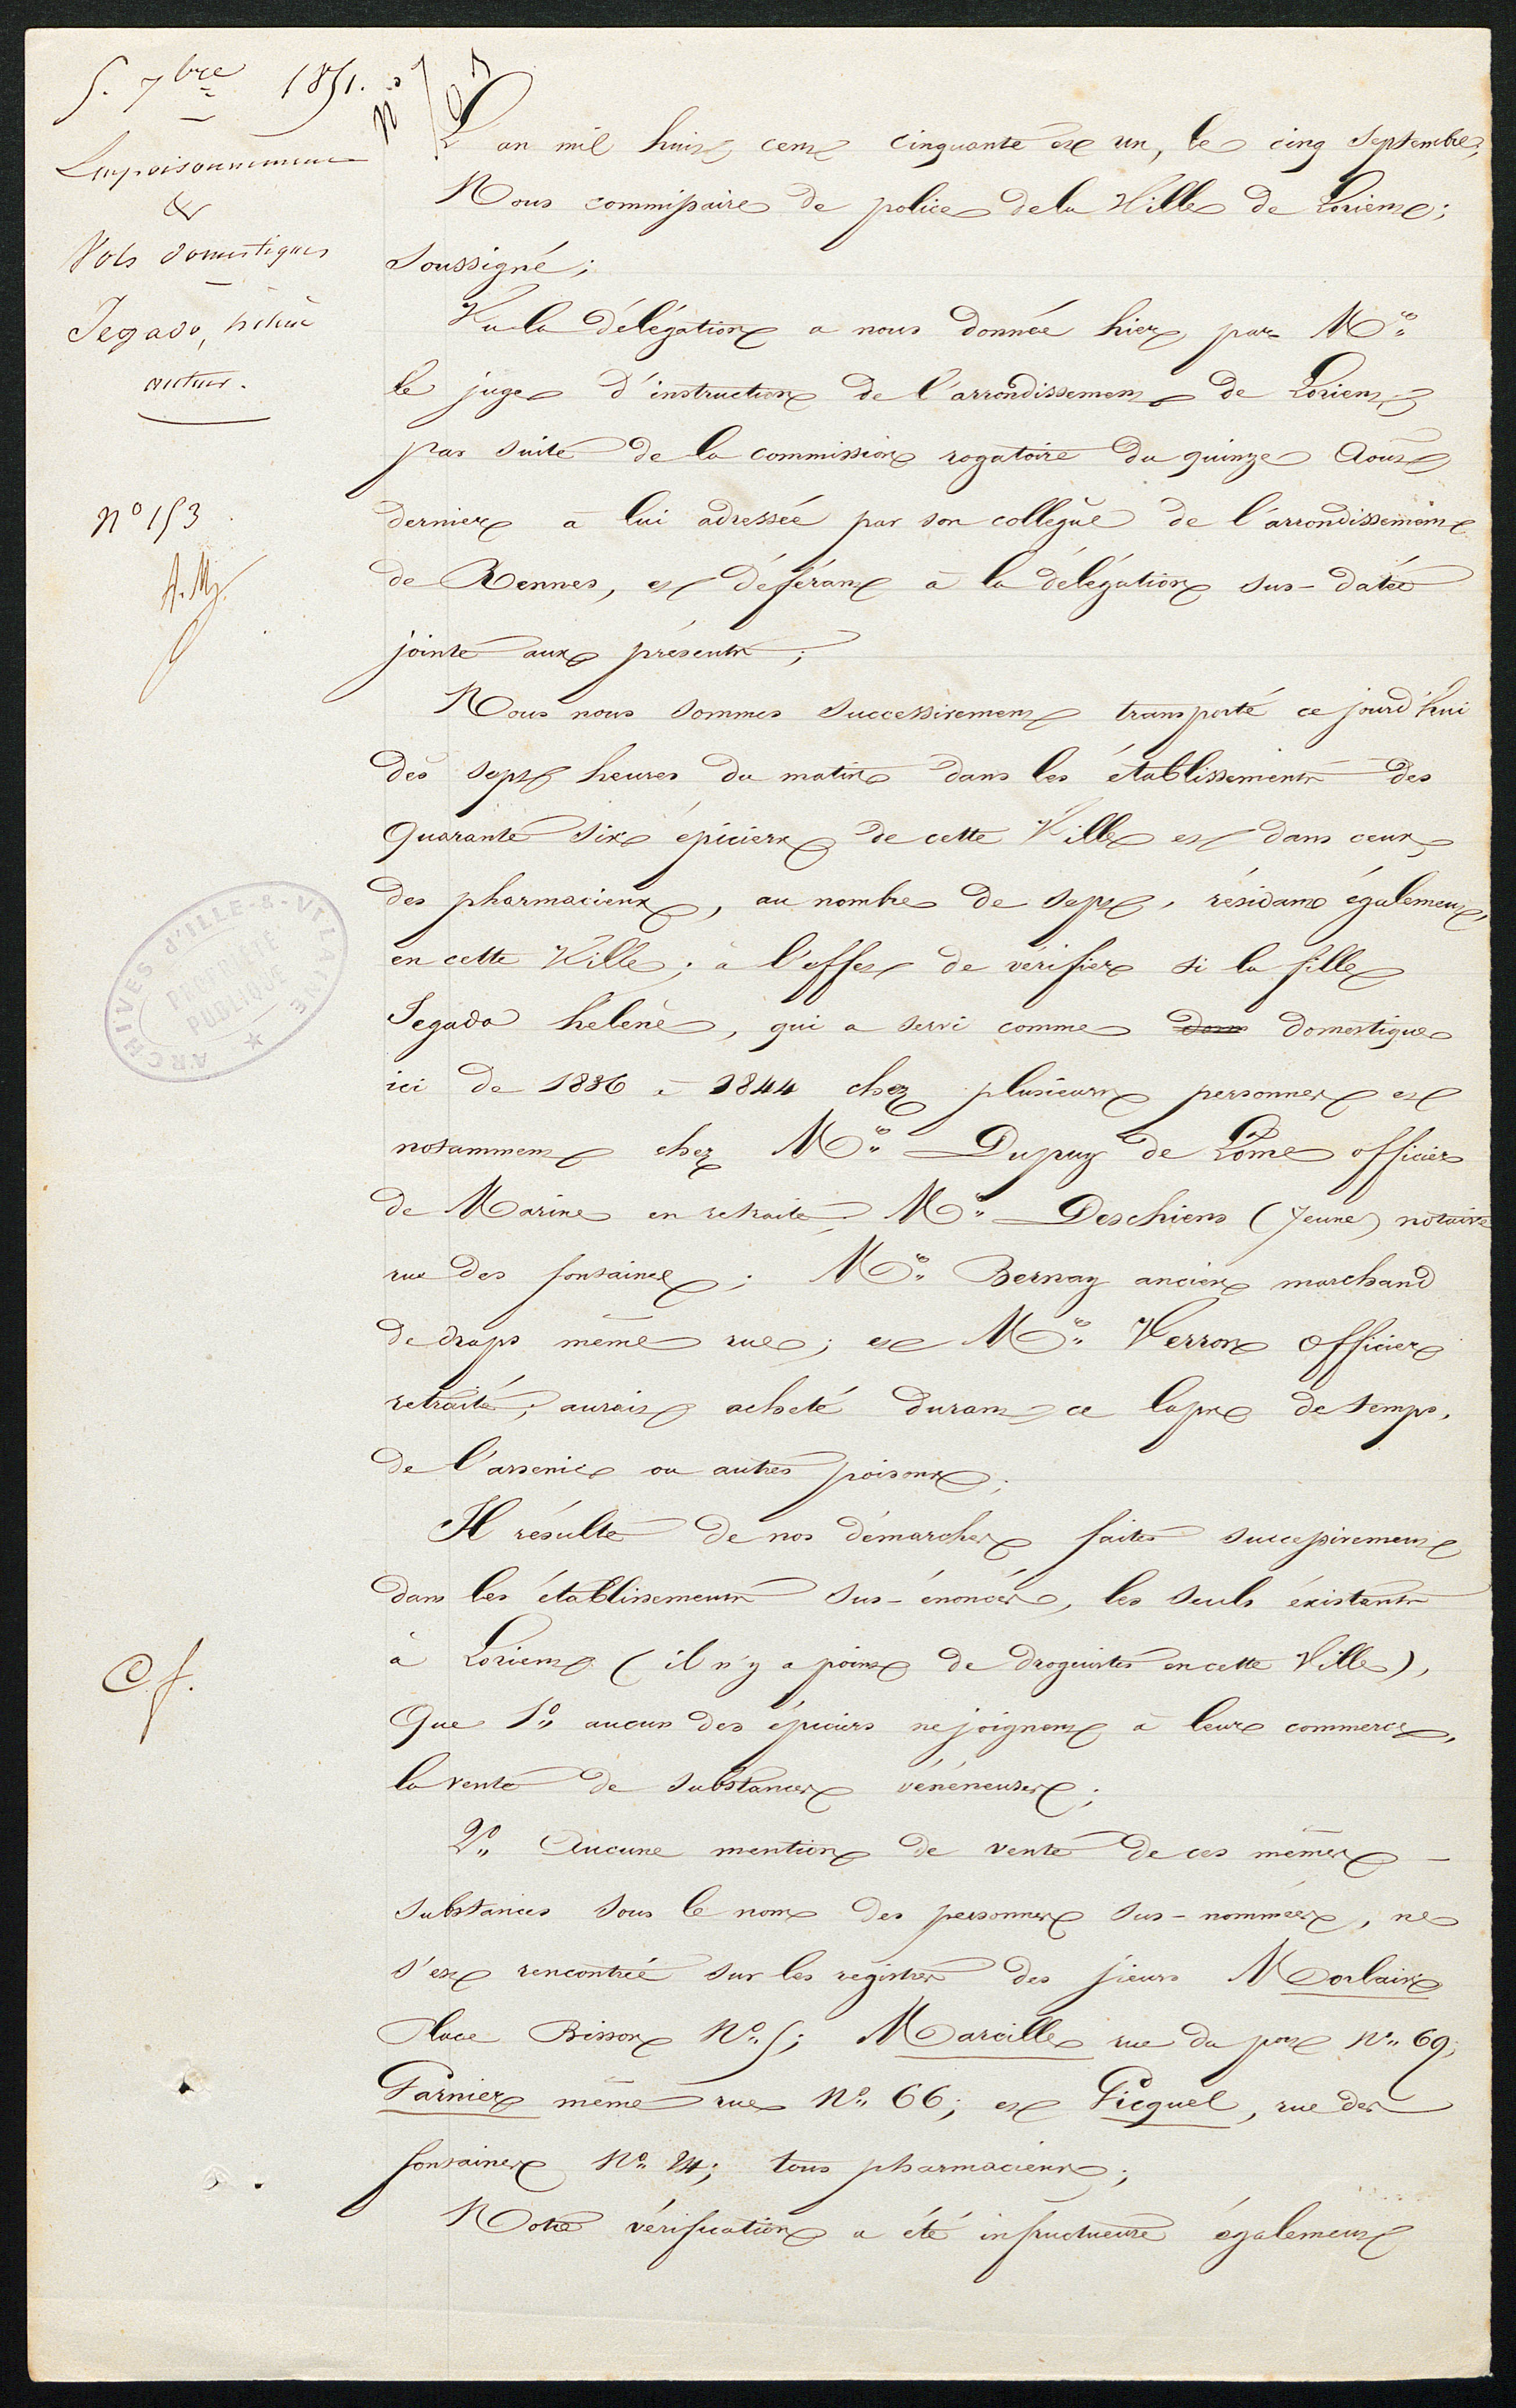 5. 7bre 1851.
Empoisonnement
&
Vols domestiques
Jegado, hélène
auteur.
N° 153
C. f.
ARCHIVES D'ILLE-&-VILAINE
PROPRIÉTÉ
PUBLIQUE
L'an mil huit cent cinquante et un, le cinq Septembre,
Nous commissaire de police de la Ville de Lorient;
Soussigné;
Vu la délégation a nous donnée hier, par Mr.
le juge d'instruction de l'arrondissement de Lorient,
par suite de la commission rogatoire du quinze Août
dernier à lui adressée par son collègue de l'arrondissement
de Rennes, et déférant à la délégation sus-datée
jointe aux présentes;
Nous nous sommes successivement transporté ce jourd'hui
dès sept heures du matin dans les établissements des
quarante six épiciers de cette Ville et dans ceux
des pharmaciens, au nombre de sept, résidant également,
en cette Ville; à l'effet de vérifier si la fille
Jegado hélène, qui a servi comme domestique
ici de 1836 à 1844 chez plusieurs personnes et
notamment chez Mr. Dupuy de Lôme officier
de Marine en retraite, Mr. Deschiens (Jeune) notaire
rue des fontaines; Mr. Bernay ancien marchand
de draps même rue; et Mr. Verron officier
retraité; aurait acheté durant ce laps de temps,
de l'arsenic ou autres poisons;
Il résulte de nos démarches faites successivement
dans les établissements sus-énoncés, les seuls éxistants
à Lorient (il n'y a point de droguistes en cette Ville),
Que 1° aucun des épiciers ne joignent à leur commerce,
la vente de substances vénéneuses;
2° Aucune mention de vente de ces mêmes -
substances sous le nom des personnes sus-nommées, ne
s'est rencontrée sur les registres des sieurs
Place Bisson N° 5; Marcille rue du port N° 69;
Garnier même rue N° 66; et Picquel, rue des
fontaines N° 24; tous pharmaciens;
Notre vérification a été infructueuse également